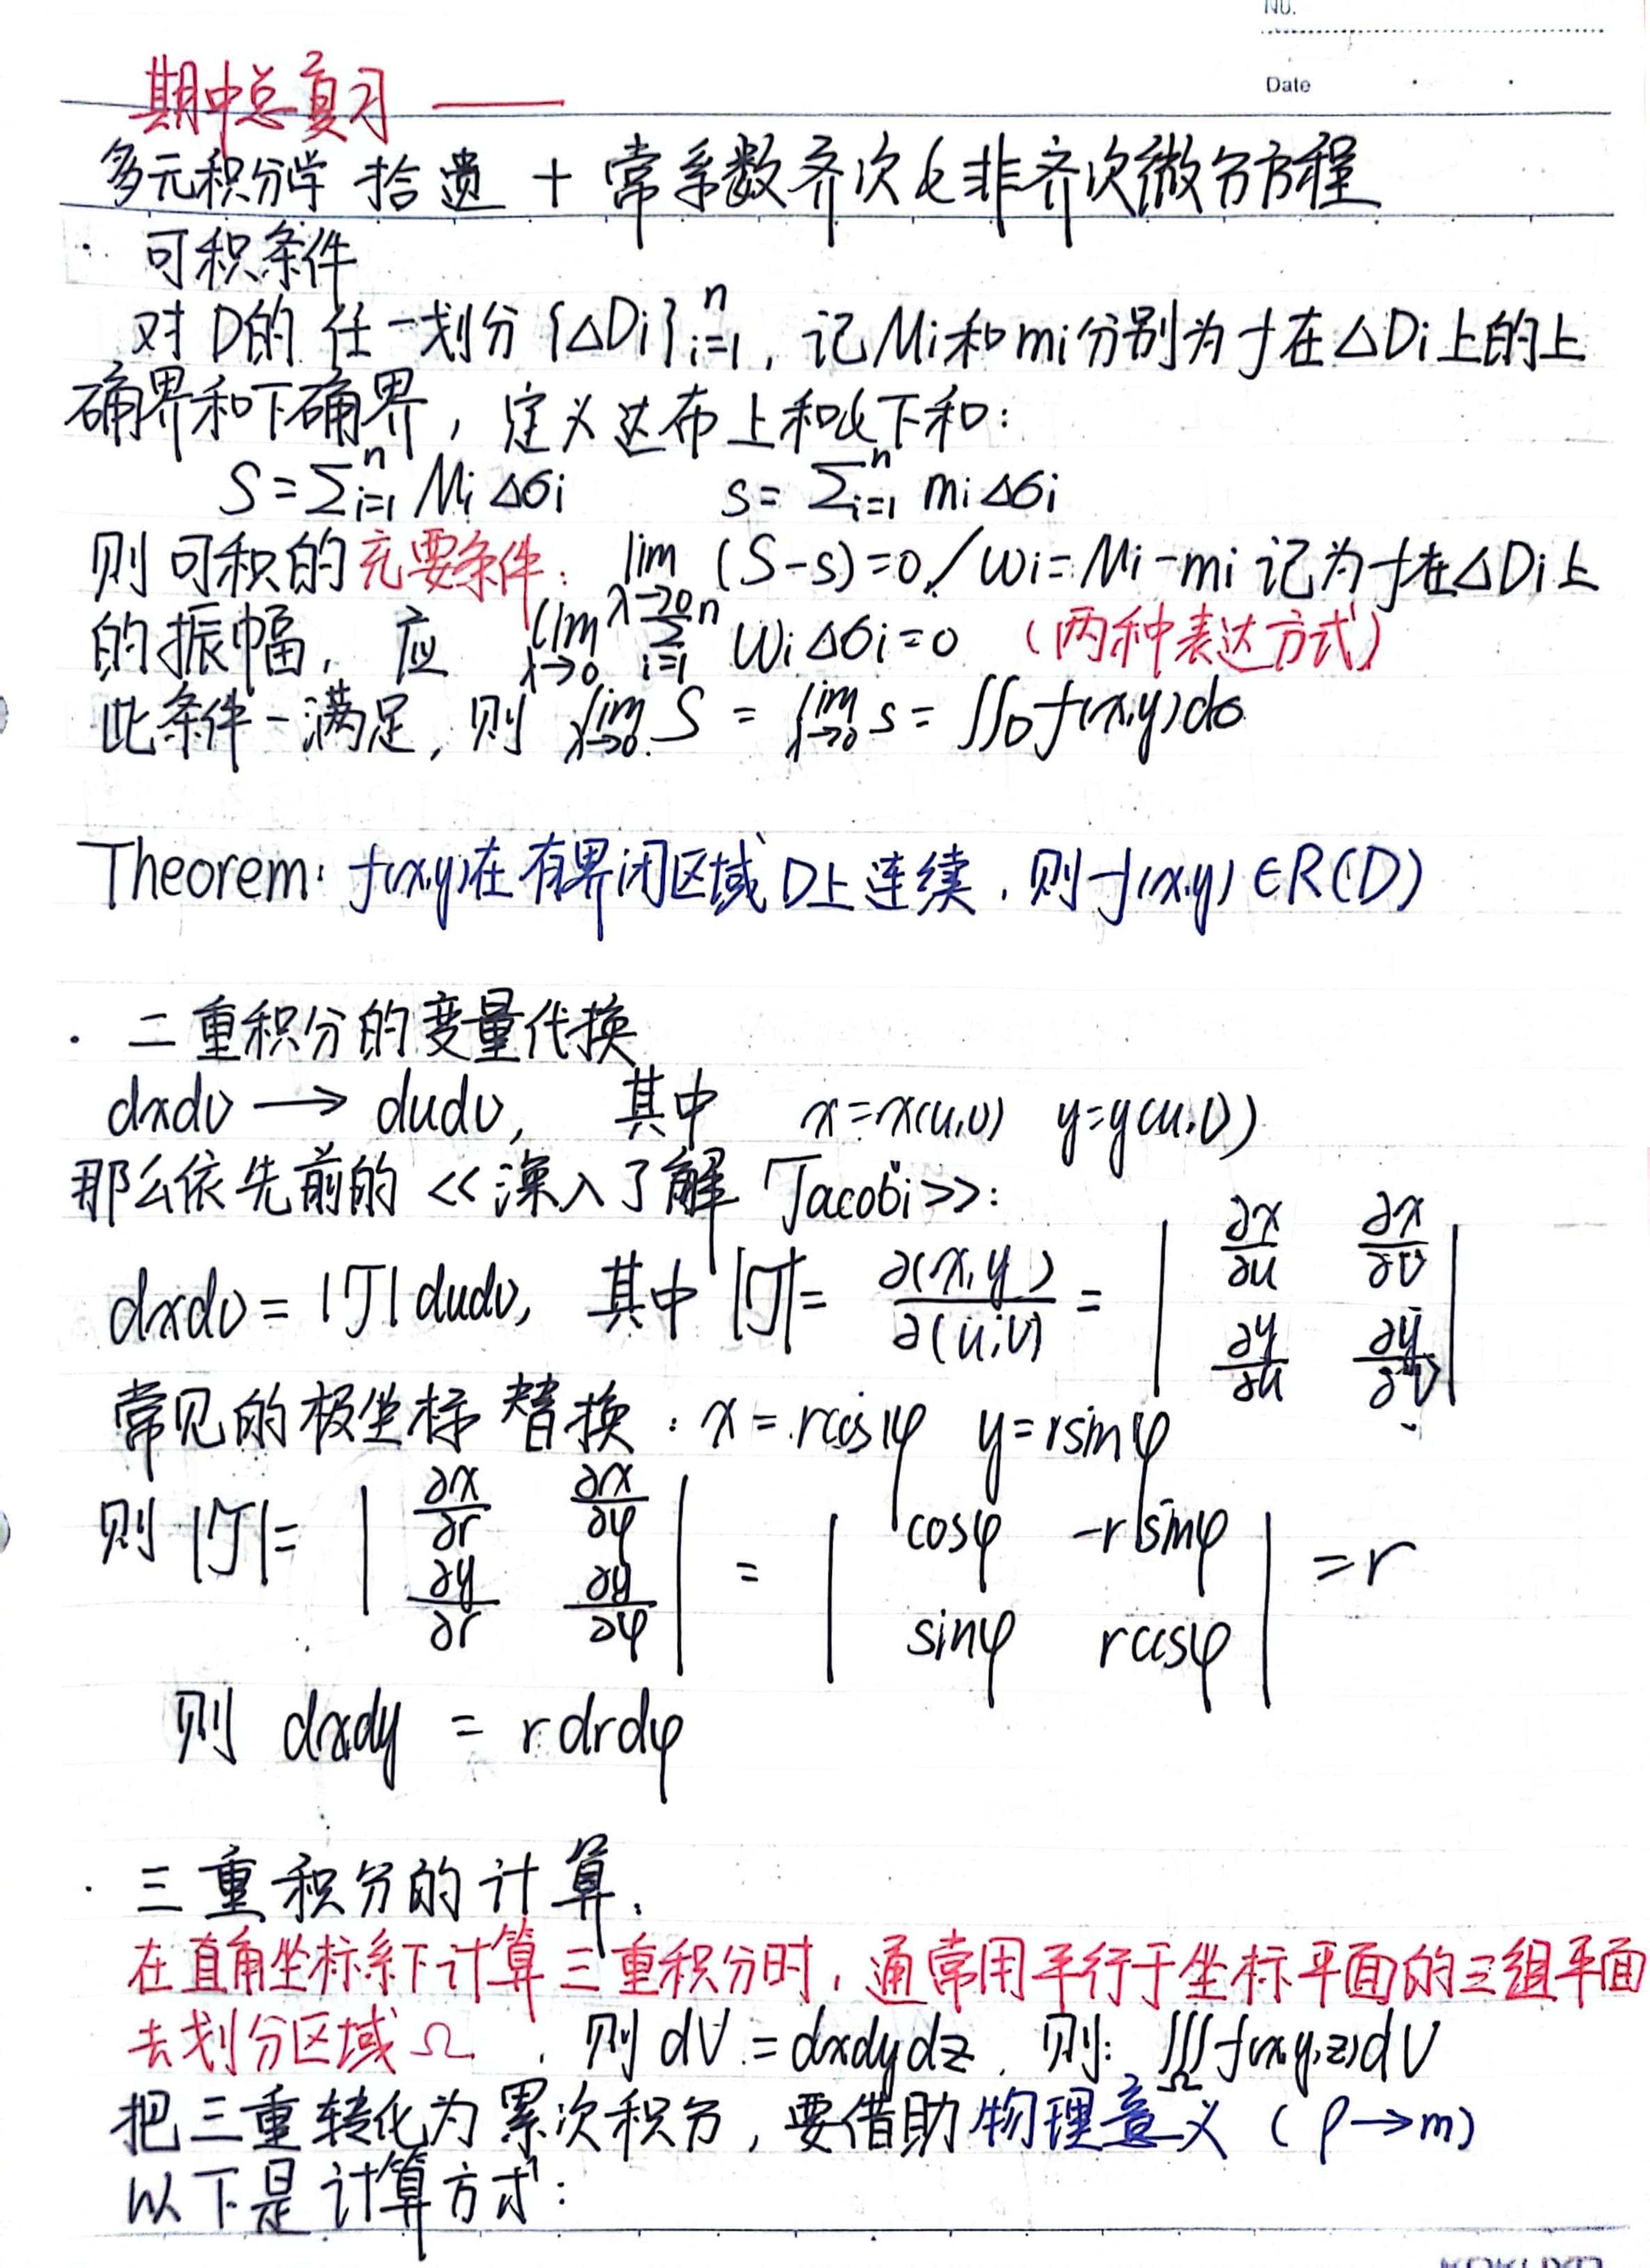 NO.
Date
期中总复习 ——
多元积分学 拾遗 + 常系数齐次&非齐次微分方程
· 可积条件
对D的 任一划分{△Di}ⁿᵢ₌₁, 记Mi和mi分别为f在△Di上的上
确界和下确界, 定义达布上和&下和:
S=∑ⁿᵢ₌₁ Mi△σi s=∑ⁿᵢ₌₁ mi△σi
则可积的充要条件: lim λ→0 (S-s)=0 / wi=Mi-mi 记为f在△Di上
的振幅, 应 lim λ→0 ∑ⁿᵢ₌₁ wi△σi=0 (两种表达方式)
此条件一满足, 则 lim λ→0 S = lim λ→0 s = ∬D f(x,y)dσ
Theorem: f(x,y)在有界闭区域D上连续, 则f(x,y)∈R(D)
· 二重积分的变量代换
dxdv → dudv, 其中 x=x(u,v) y=y(u,v)
那么依先前的《深入了解Jacobi》:
dxdv = |J|dudv, 其中|J| = ∂(x,y)/∂(u,v) = | ∂x/∂u ∂x/∂v ; ∂y/∂u ∂y/∂v |
常见的极坐标替换: x=rcosφ y=rsinφ
则|J| = | ∂x/∂r ∂x/∂φ ; ∂y/∂r ∂y/∂φ | = | cosφ -rsinφ ; sinφ rcosφ | = r
则 dxdy = rdrdφ
· 三重积分的计算.
在直角坐标系下计算三重积分时, 通常用平行于坐标平面的三组平面
去划分区域Ω, 则dV=dxdydz, 则: ∭Ω f(x,y,z)dV
把三重转化为累次积分, 要借助物理意义 (ρ→m)
以下是计算方式:
KOKUYO